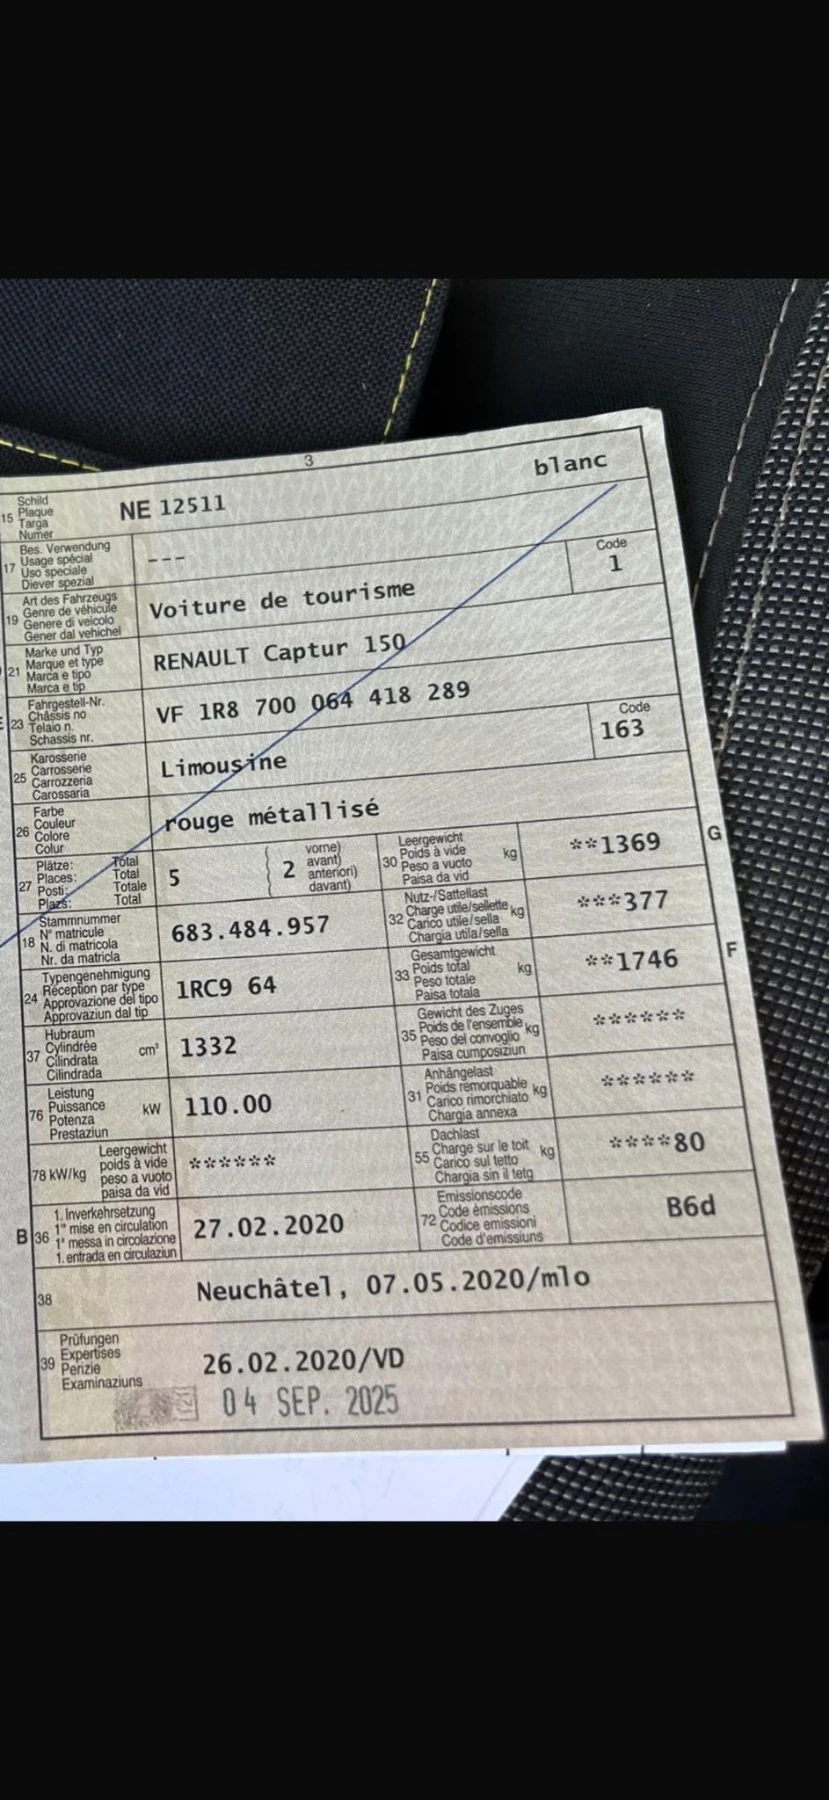 3
15 Schild Plaque Targa Numer NE 12511 blanc
17 Bes. Verwendung Usage spécial Uso speciale Diever spezial ---
19 Art des Fahrzeugs Genre de véhicule Genere di veicolo Gener dal vehichel Voiture de tourisme Code 1
21 Marke und Typ Marque et type Marca e tipo Marca e tip RENAULT Captur 150
23 Fahrgestell-Nr. Châssis no Telaio n. Schassis nr. VF 1R8 700 064 418 289
25 Karosserie Carrosserie Carrozzeria Carossaria Limousine Code 163
26 Farbe Couleur Colore Colur rouge métallisé
27 Plätze: Total Places: Total Posti: Totale Plazs: Total 5 2 vorne) avant) anteriori) davant)
30 Leergewicht Poids à vide Peso a vuoto Paisa da vid kg **1369 G
18 Stammnummer N° matricule N. di matricola Nr. da matricla 683.484.957
32 Nutz-/Sattellast Charge utile/sellette Carico utile/sella Chargia utila/sella kg ***377
24 Typengenehmigung Réception par type Approvazione del tipo Approvaziun dal tip 1RC9 64
33 Gesamtgewicht Poids total Peso totale Paisa totala kg **1746 F
37 Hubraum Cylindrée Cilindrata Cilindrada cm³ 1332
35 Gewicht des Zuges Poids de l'ensemble Peso del convoglio Paisa cumposiziun kg ******
76 Leistung Puissance Potenza Prestaziun kW 110.00
31 Anhängelast Poids remorquable Carico rimorchiato Chargia annexa kg ******
78 kW/kg Leergewicht poids à vide peso a vuoto paisa da vid ******
55 Dachlast Charge sur le toit Carico sul tetto Chargia sin il tetg kg ****80
B 36 1. Inverkehrsetzung 1re mise en circulation 1a messa in circolazione 1. entrada en circulaziun 27.02.2020
72 Emissionscode Code émissions Codice emissioni Code d'emissiuns B6d
38 Neuchâtel, 07.05.2020/mlo
39 Prüfungen Expertises Perizie Examinaziuns 26.02.2020/VD
04 SEP. 2025